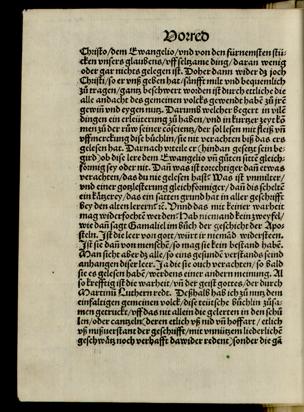 Vorred
Christo/dem Ewangelio/vnd von den fürnemsten stü-
cken vnsers glaubens/vff seltzame ding/daran wenig
oder gar nichts gelegen ist. Doher dann wider dz joch
Christi/so er vns geben hat/sanfft milt vnd bequemlich
zů tragen/gantz beschwert worden ist durch etliche die
alle andacht des gemeinen volcks gewendt habe zů jrē
gewiñ vnd eygen nutz. Darumb welcher begert in
dingen ein erleüterung zů haben/vnd in kurtzer zeyt kō
men zů der růw seiner cōscientz/der sol lesen mit fleiß vñ
vffmerckung dise büchlin/sie nit verachten biß das ers
gelesen hat. Darnach vrteile er (hindan gesetzt sein be-
gird) ob dise lere dem Ewangelio vñ gůten sitte gleich-
förmig sey oder nit. Dan was ist torechtiger dañ etwas
verachten/das du nie gelesen hast? Was ist
vnd einer gotzlesterung gleichförmiger/dan die scheltē
ein kätzerey/das ein satten grund hat in aller geschrifft
bey den alten lerern? Vnd das mit keiner warheit
mag widerfochtē werden? Hab niemand kein zweyfel/
wie dañ sagt Gamaliel im bůch der geschicht der Apo-
steln. Ist die leer von got/würt ir niemād widersteen.
Ist sie dañ von menschē/so mag sie kein bestand habē.
Man sicht aber dz alle/so eins gesunds verstands seind
anhangen diser leer. Ja die sie ouch verachten/so bald
sie es gelesen habē/werdens einer andern meinung. Al
so krefftig ist die warheit/vñ der geist gottes/der durch
Martinū Lutherū redt. Deßhalb hab ich zů nutz dem
einfaltigen gemeinen volck/dise teütsche büchlin zůsa-
men getruckt/vff das nit allein die gelerten in den schů
len/oder cantzeln (deren etlich vß nid vñ hoffart/etlich
vß mißuerstant der geschrifft/mit vnnützem liederlichē
geschwätz noch verhafft dawider redent) sonder die gā